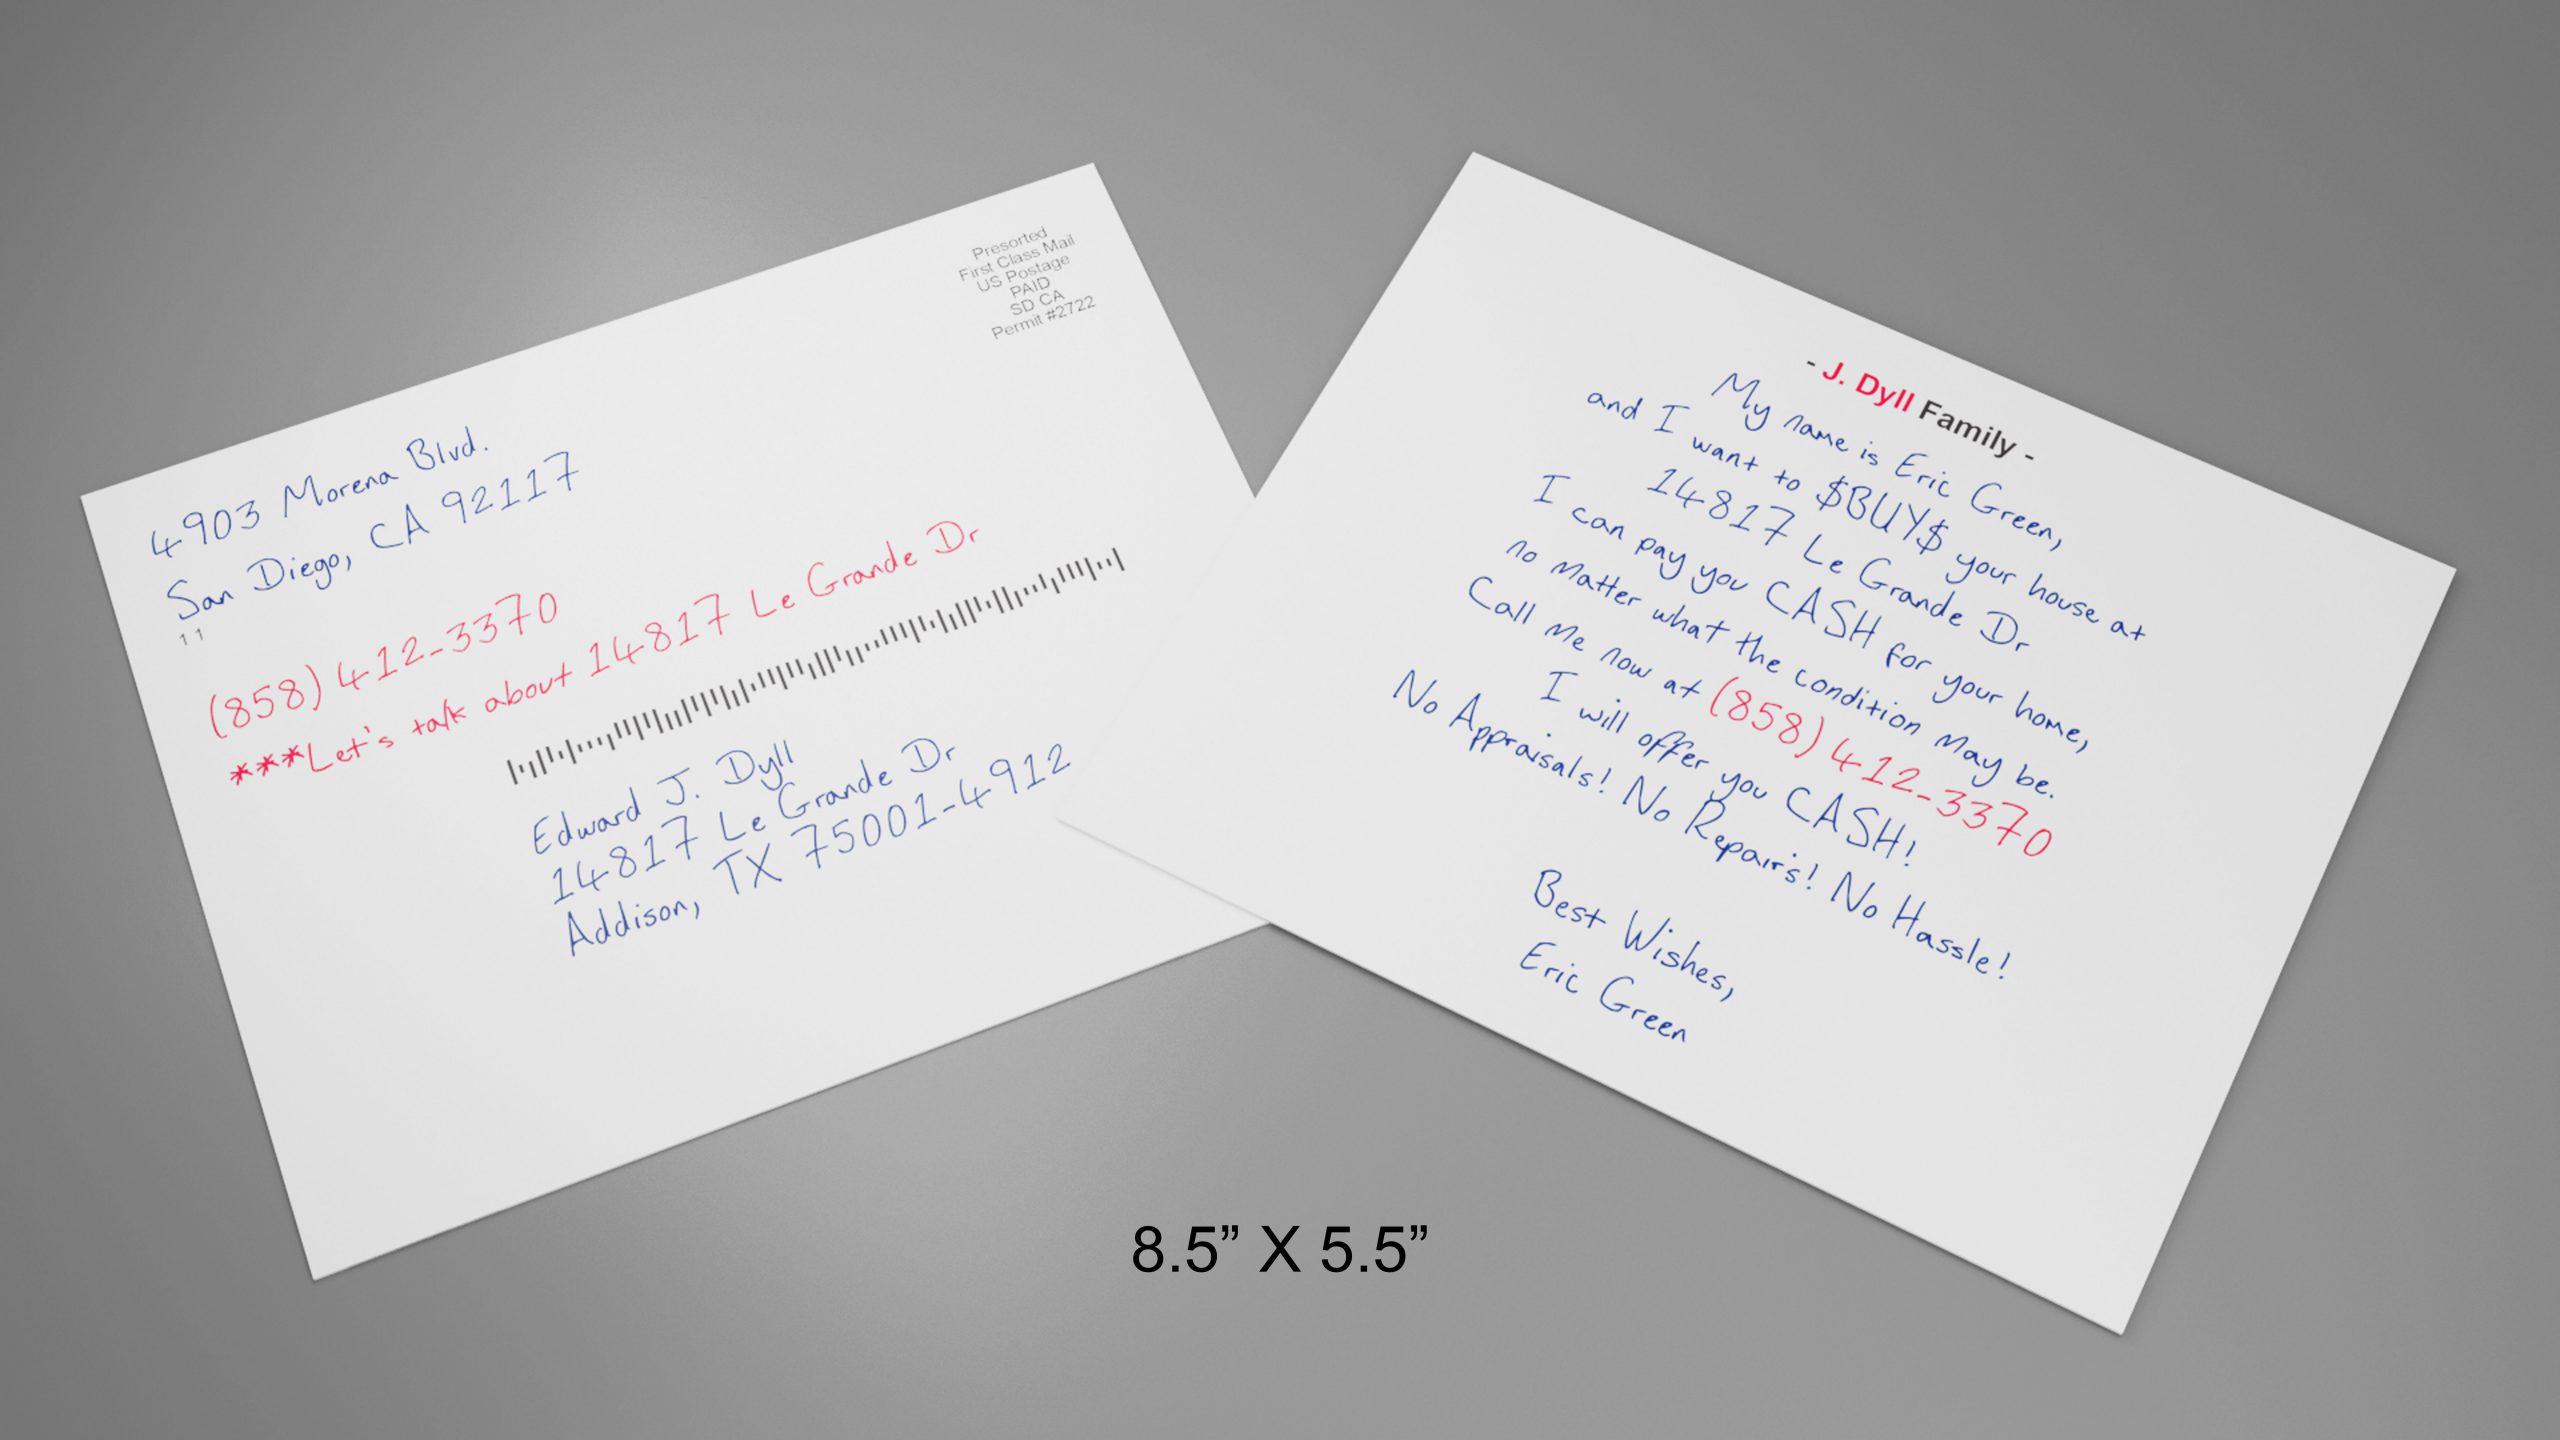 Presorted
First Class Mail
US Postage
PAID
SD CA
Permit #2722
4903 Morena Blvd.
San Diego, CA 92117
11
(858) 412-3370
***Let's talk about 14817 Le Grande Dr
Edward J. Dyll
14817 Le Grande Dr
Addison, TX 75001-4912
- J. Dyll Family -
My name is Eric Green,
and I want to $BUY$ your house at
14817 Le Grande Dr
I can pay you CASH for your home,
no matter what the condition may be.
Call me now at (858) 412-3370
I will offer you CASH!
No Appraisals! No Repairs! No Hassle!
Best Wishes,
Eric Green
8.5” X 5.5”